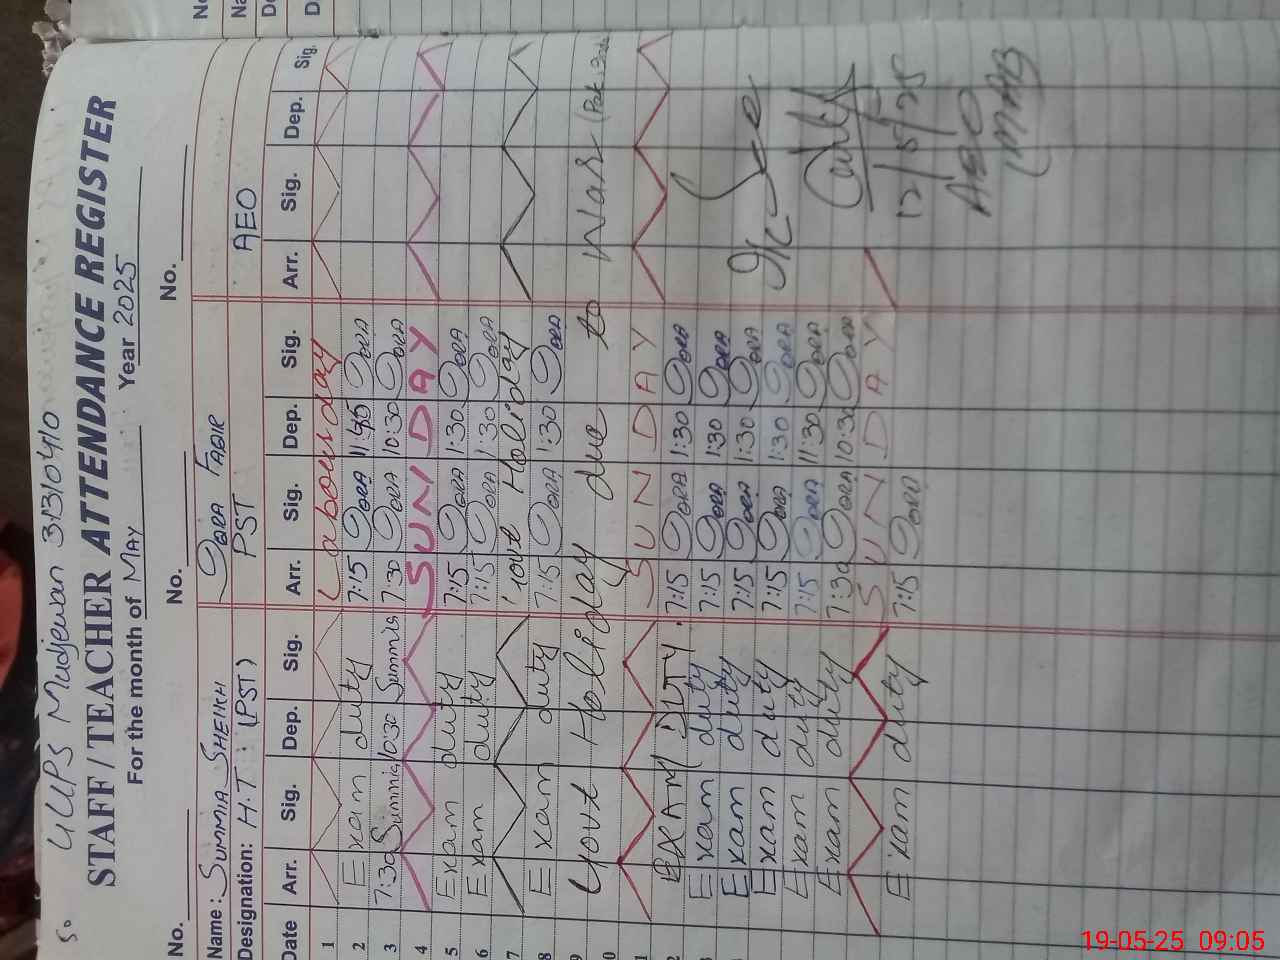 GGPS Mudjewan 31310410
STAFF / TEACHER ATTENDANCE REGISTER
For the month of MAY Year 2025
No. No. No.
Name: SUMMIA SHEIKH SORA FAQIR
Designation: H.T (PST) PST AEO
Date Arr. Sig. Dep. Sig. Arr. Sig. Dep. Sig. Arr. Sig. Dep. Sig.
1 Labour day
2 Exam duty 7:15 SORA 11:45 SORA
3 7:30 Summia 10:30 Summia 7:30 SORA 10:30 SORA
4 SUNDAY
5 Exam duty 7:15 SORA 1:30 SORA
6 Exam duty 7:15 SORA 1:30 SORA
7 Govt Holiday
8 Exam duty 7:15 SORA 1:30 SORA
9 Govt Holiday due to War (Pak
0
1 SUNDAY
2 EXAM DUTY. 7:15 SORA 1:30 SORA
Exam duty 7:15 SORA 1:30 SORA
Exam duty 7:15 SORA 1:30 SORA
Exam duty 7:15 SORA 1:30 SORA
Exam duty 7:15 SORA 11:30 SORA
Exam duty 7:30 SORA 10:30 SORA
SUNDAY
Exam duty 7:15 SORA
12/5/25
AEO
19-05-25 09:05